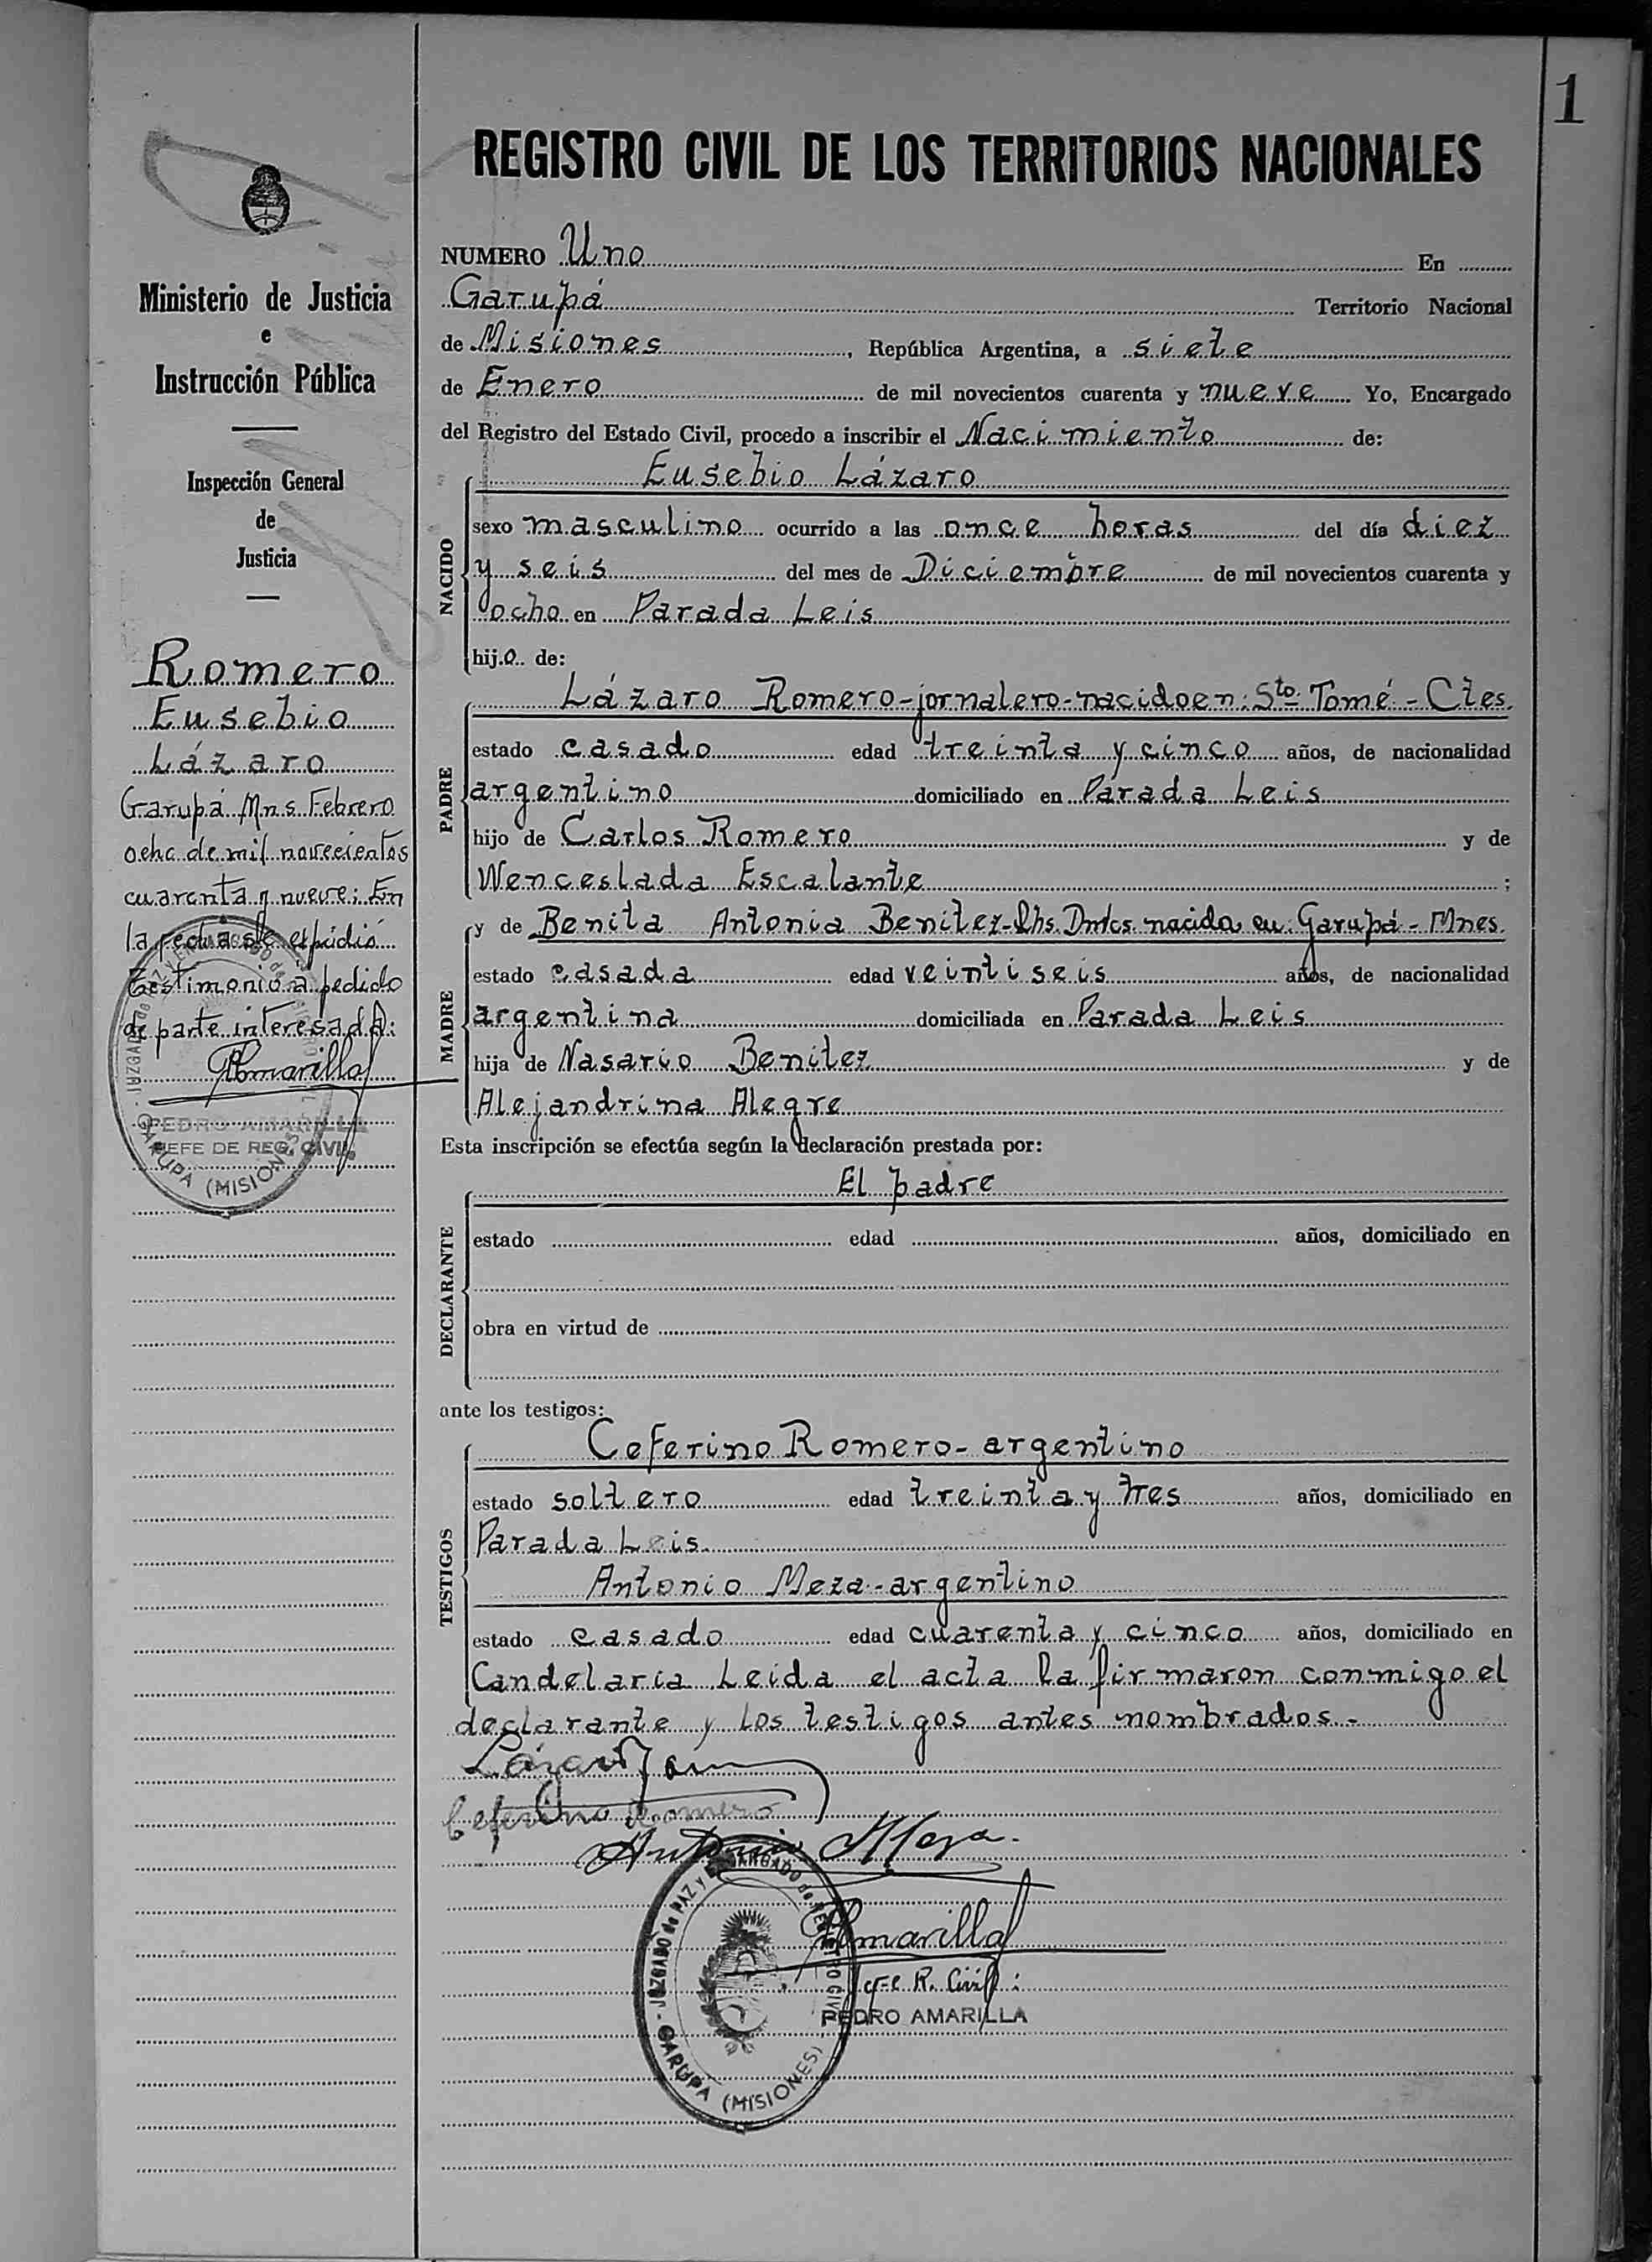 1
REGISTRO CIVIL DE LOS TERRITORIOS NACIONALES
Ministerio de Justicia
e
Instrucción Pública
Inspección General
de
Justicia
Romero
Eusebio
Lázaro
Garupá Mns. Febrero
ocho de mil novecientos
cuarenta y nueve: En
la fecha se expidió
Testimonio a pedido
de parte interesada:
PAmarilla
PEDRO AMARILLA
JEFE DE REG. CIVIL
JUZGADO de PAZ y ENCARGADO de REGISTRO CIVIL
GARUPA (MISIONES)
NUMERO Uno En
Garupá Territorio Nacional
de Misiones, República Argentina, a siete
de Enero de mil novecientos cuarenta y nueve Yo, Encargado
del Registro del Estado Civil, procedo a inscribir el Nacimiento de:
NACIDO
Eusebio Lázaro
sexo masculino ocurrido a las once horas del día diez
y seis del mes de Diciembre de mil novecientos cuarenta y
ocho en Parada Leis
hijo de:
PADRE
Lázaro Romero-jornalero-nacido en: Sto. Tomé - Ctes.
estado casado edad treinta y cinco años, de nacionalidad
argentino domiciliado en Parada Leis
hijo de Carlos Romero y de
Wenceslada Escalante ;
MADRE
y de Benita Antonia Benitez-Qhs. Dmtcs. nacida en: Garupá - Mnes.
estado casada edad veintiseis años, de nacionalidad
argentina domiciliada en Parada Leis
hija de Nasario Benitez y de
Alejandrina Alegre
Esta inscripción se efectúa según la declaración prestada por:
DECLARANTE
El padre
estado edad años, domiciliado en
obra en virtud de
ante los testigos:
TESTIGOS
Ceferino Romero- argentino
estado soltero edad treinta y tres años, domiciliado en
Parada Leis.
Antonio Meza-argentino
estado casado edad cuarenta y cinco años, domiciliado en
Candelaria Leida el acta la firmaron conmigo el
declarante y los testigos antes nombrados.-
Lázaro
Ceferino Romero
Antonio Meza.
PAmarilla
Jefe R. Civil:
PEDRO AMARILLA
JUZGADO de PAZ y ENCARGADO de REGISTRO CIVIL
GARUPA (MISIONES)